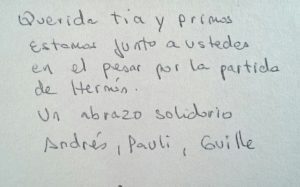 Querida tia y primos
Estamos junto a ustedes
en el pesar por la partida
de Hermín.
Un abrazo solidario
Andrés, Pauli, Guille